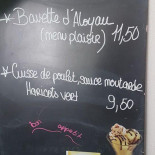 * Bavette d'Aloyau 11,50
(menu plaisir)
* Cuisse de poulet, sauce moutarde,
Haricots vert 9,50
bon appétit